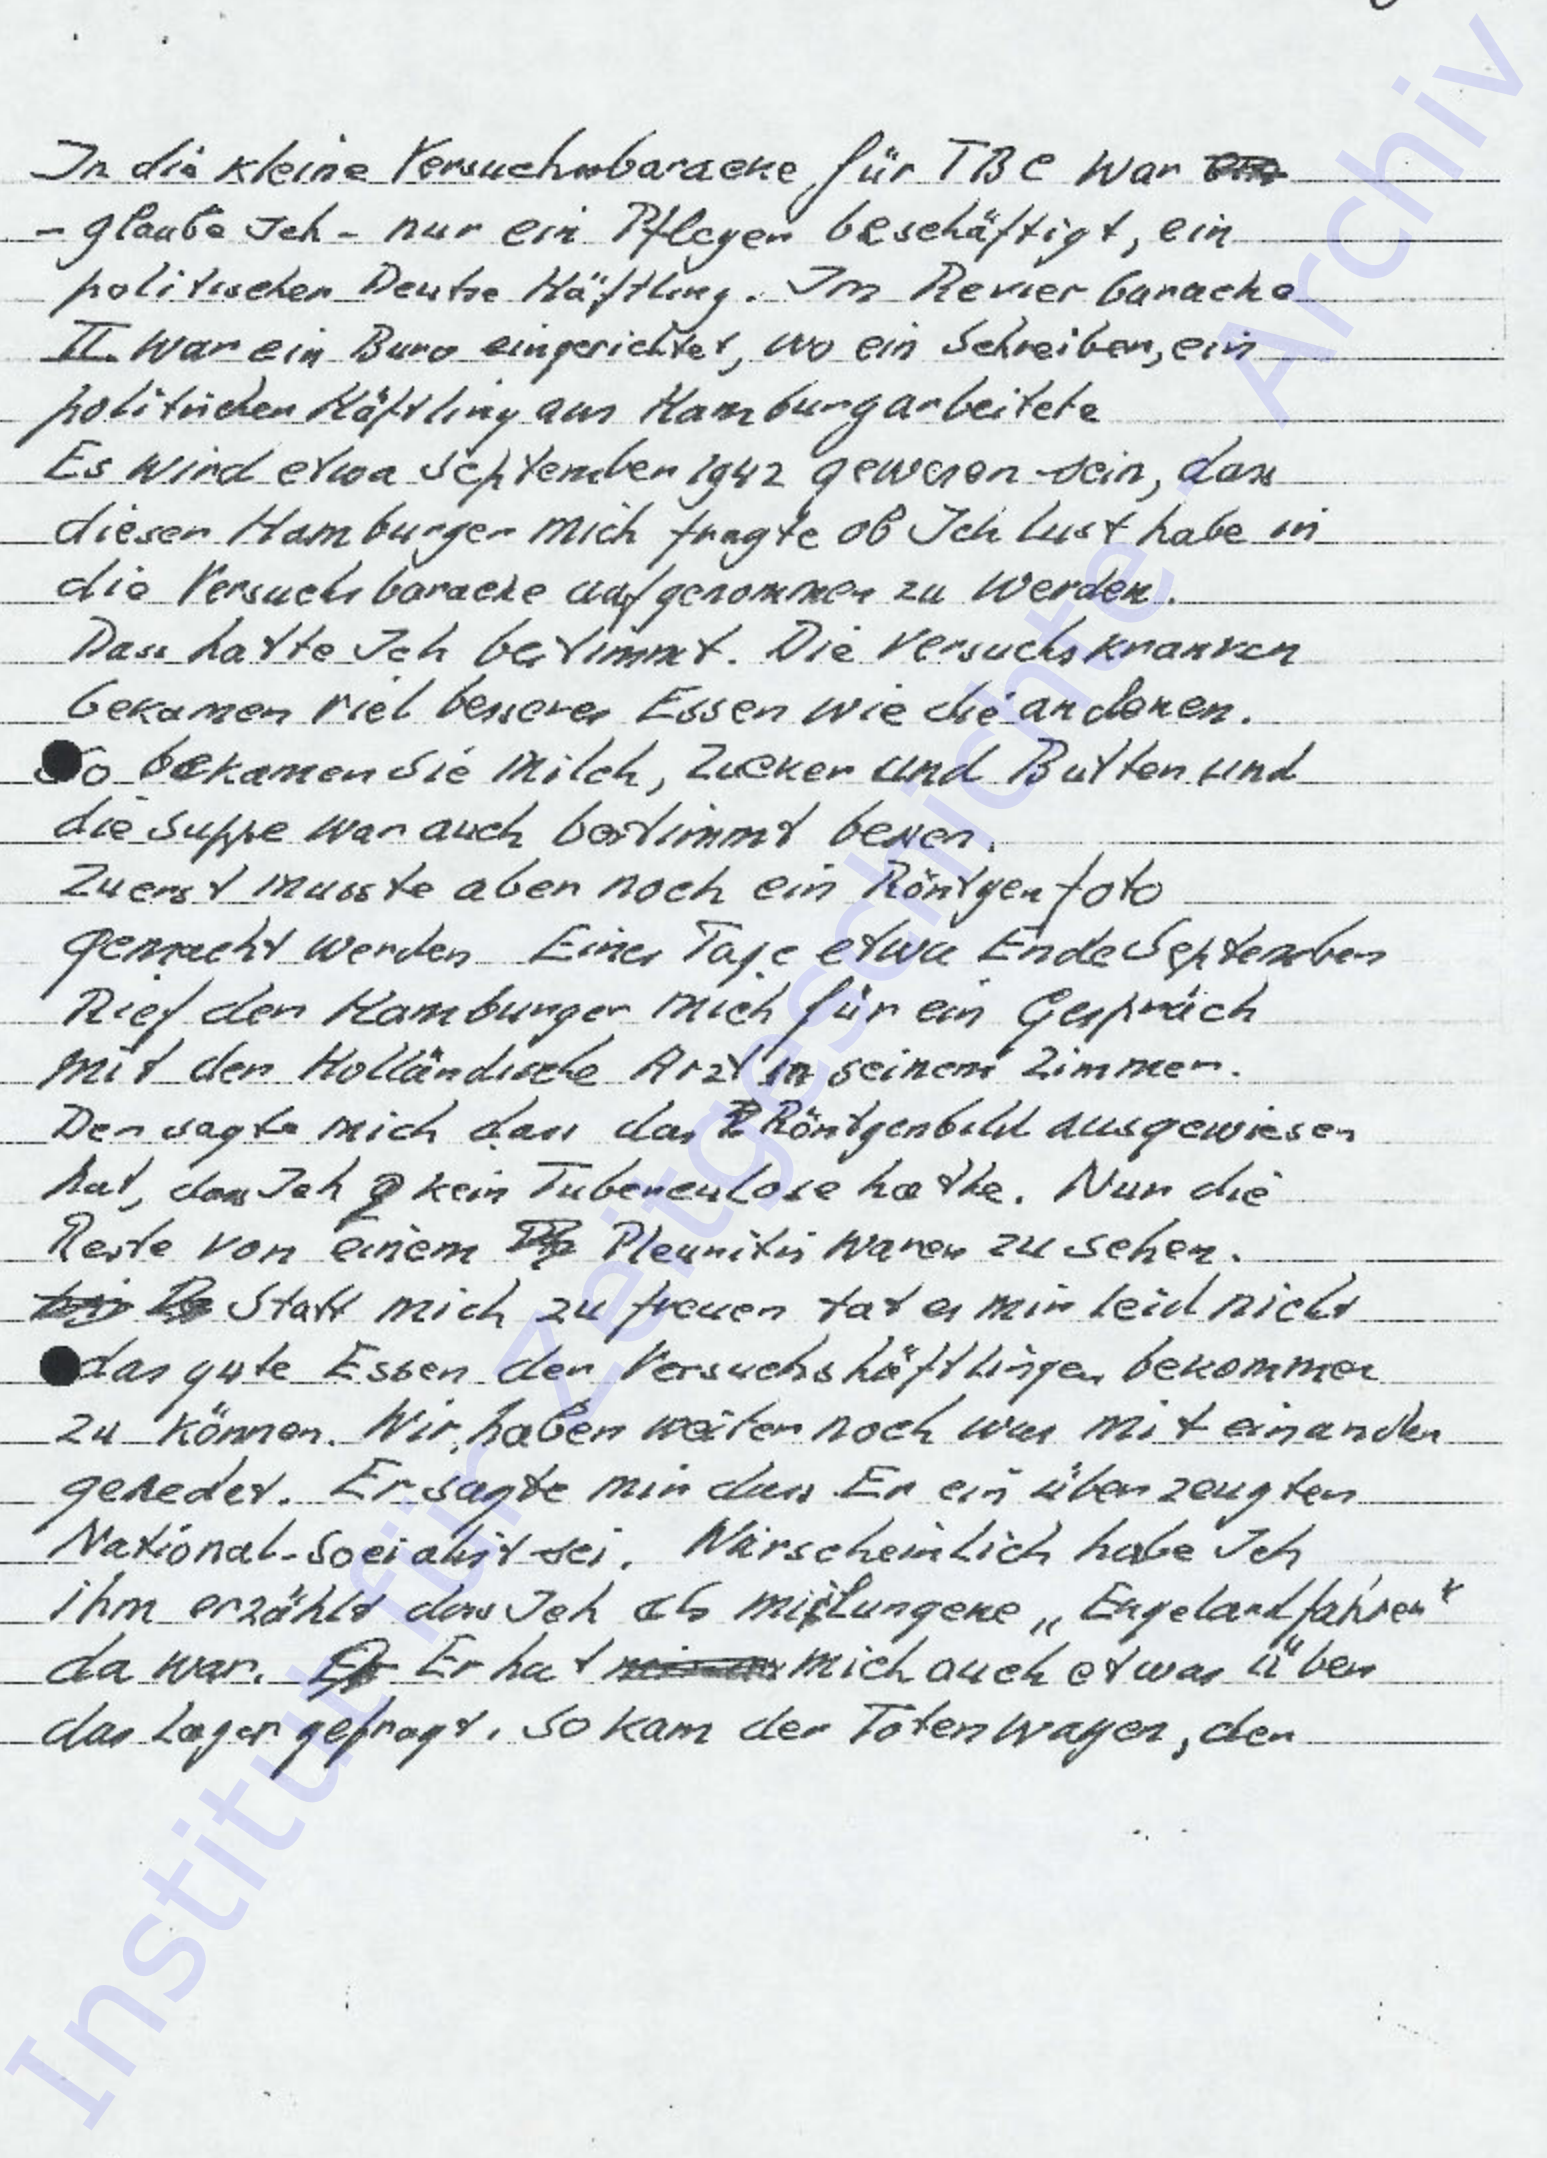 In die kleine Versuchsbaracke für TBC war
- glaube Ich - nur ein Pfleger beschäftigt, ein
politischer Deutse Häftling. Im Revier baracke
II war ein Buro eingerichtet, wo ein Schreiber, ein
politischer Häftling aus Hamburg arbeitete
Es wird etwa September 1942 gewesen sein, dass
dieser Hamburger mich fragte ob Ich lust habe in
die Versuchsbaracke aufgenommen zu werden.
Dass hatte Ich bestimmt. Die Versuchskranken
bekamen viel besseres Essen wie die anderen.
So bekamen sie Milch, Zucker und Butter und
die Suppe war auch bestimmt besser.
Zuerst musste aber noch ein Röntgenfoto
gemacht werden Eines Tage etwa Ende September
Rief der Hamburger mich für ein Gespräch
mit der Holländische Arzt in seinem Zimmer.
Der sagte mich dass das Röntgenbild ausgewiesen
hat, dass Ich kein Tuberculose hatte. Nur die
Reste von einem Pleuritis waren zu sehen.
Statt mich zu freuen tat es mir leid nicht
das gute Essen der Versuchshäftlingen bekommen
zu können. Wir haben weiter noch was mit einander
geredet. Er sagte mir dass Er ein überzeugten
National-Socialist sei. Warscheinlich habe Ich
ihm erzählt dass Ich als mislungene „Engelandfahrer"
da war. Er hat mich auch etwas über
das Lager gefragt. So kam der Totenwagen, der
Institut für Zeitgeschichte - Archiv